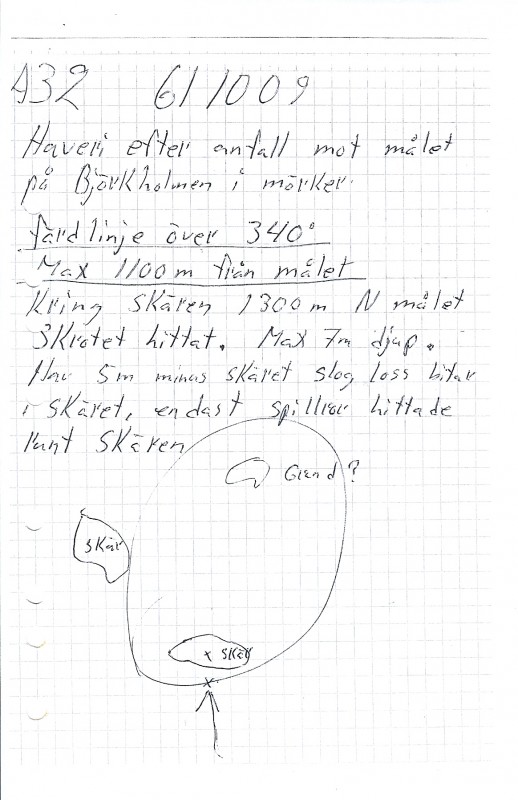 A32 611009
Haveri efter anfall mot målet
på Björkholmen i mörker.
färdlinje över 340°
Max 1100m från målet
Kring skären 1300m N målet
skrotet hittat. Max 7m djup.
5m minus skäret slog loss bitar
i skäret, endast spillror hittade
runt skären
Grund?
skär
x skär
x